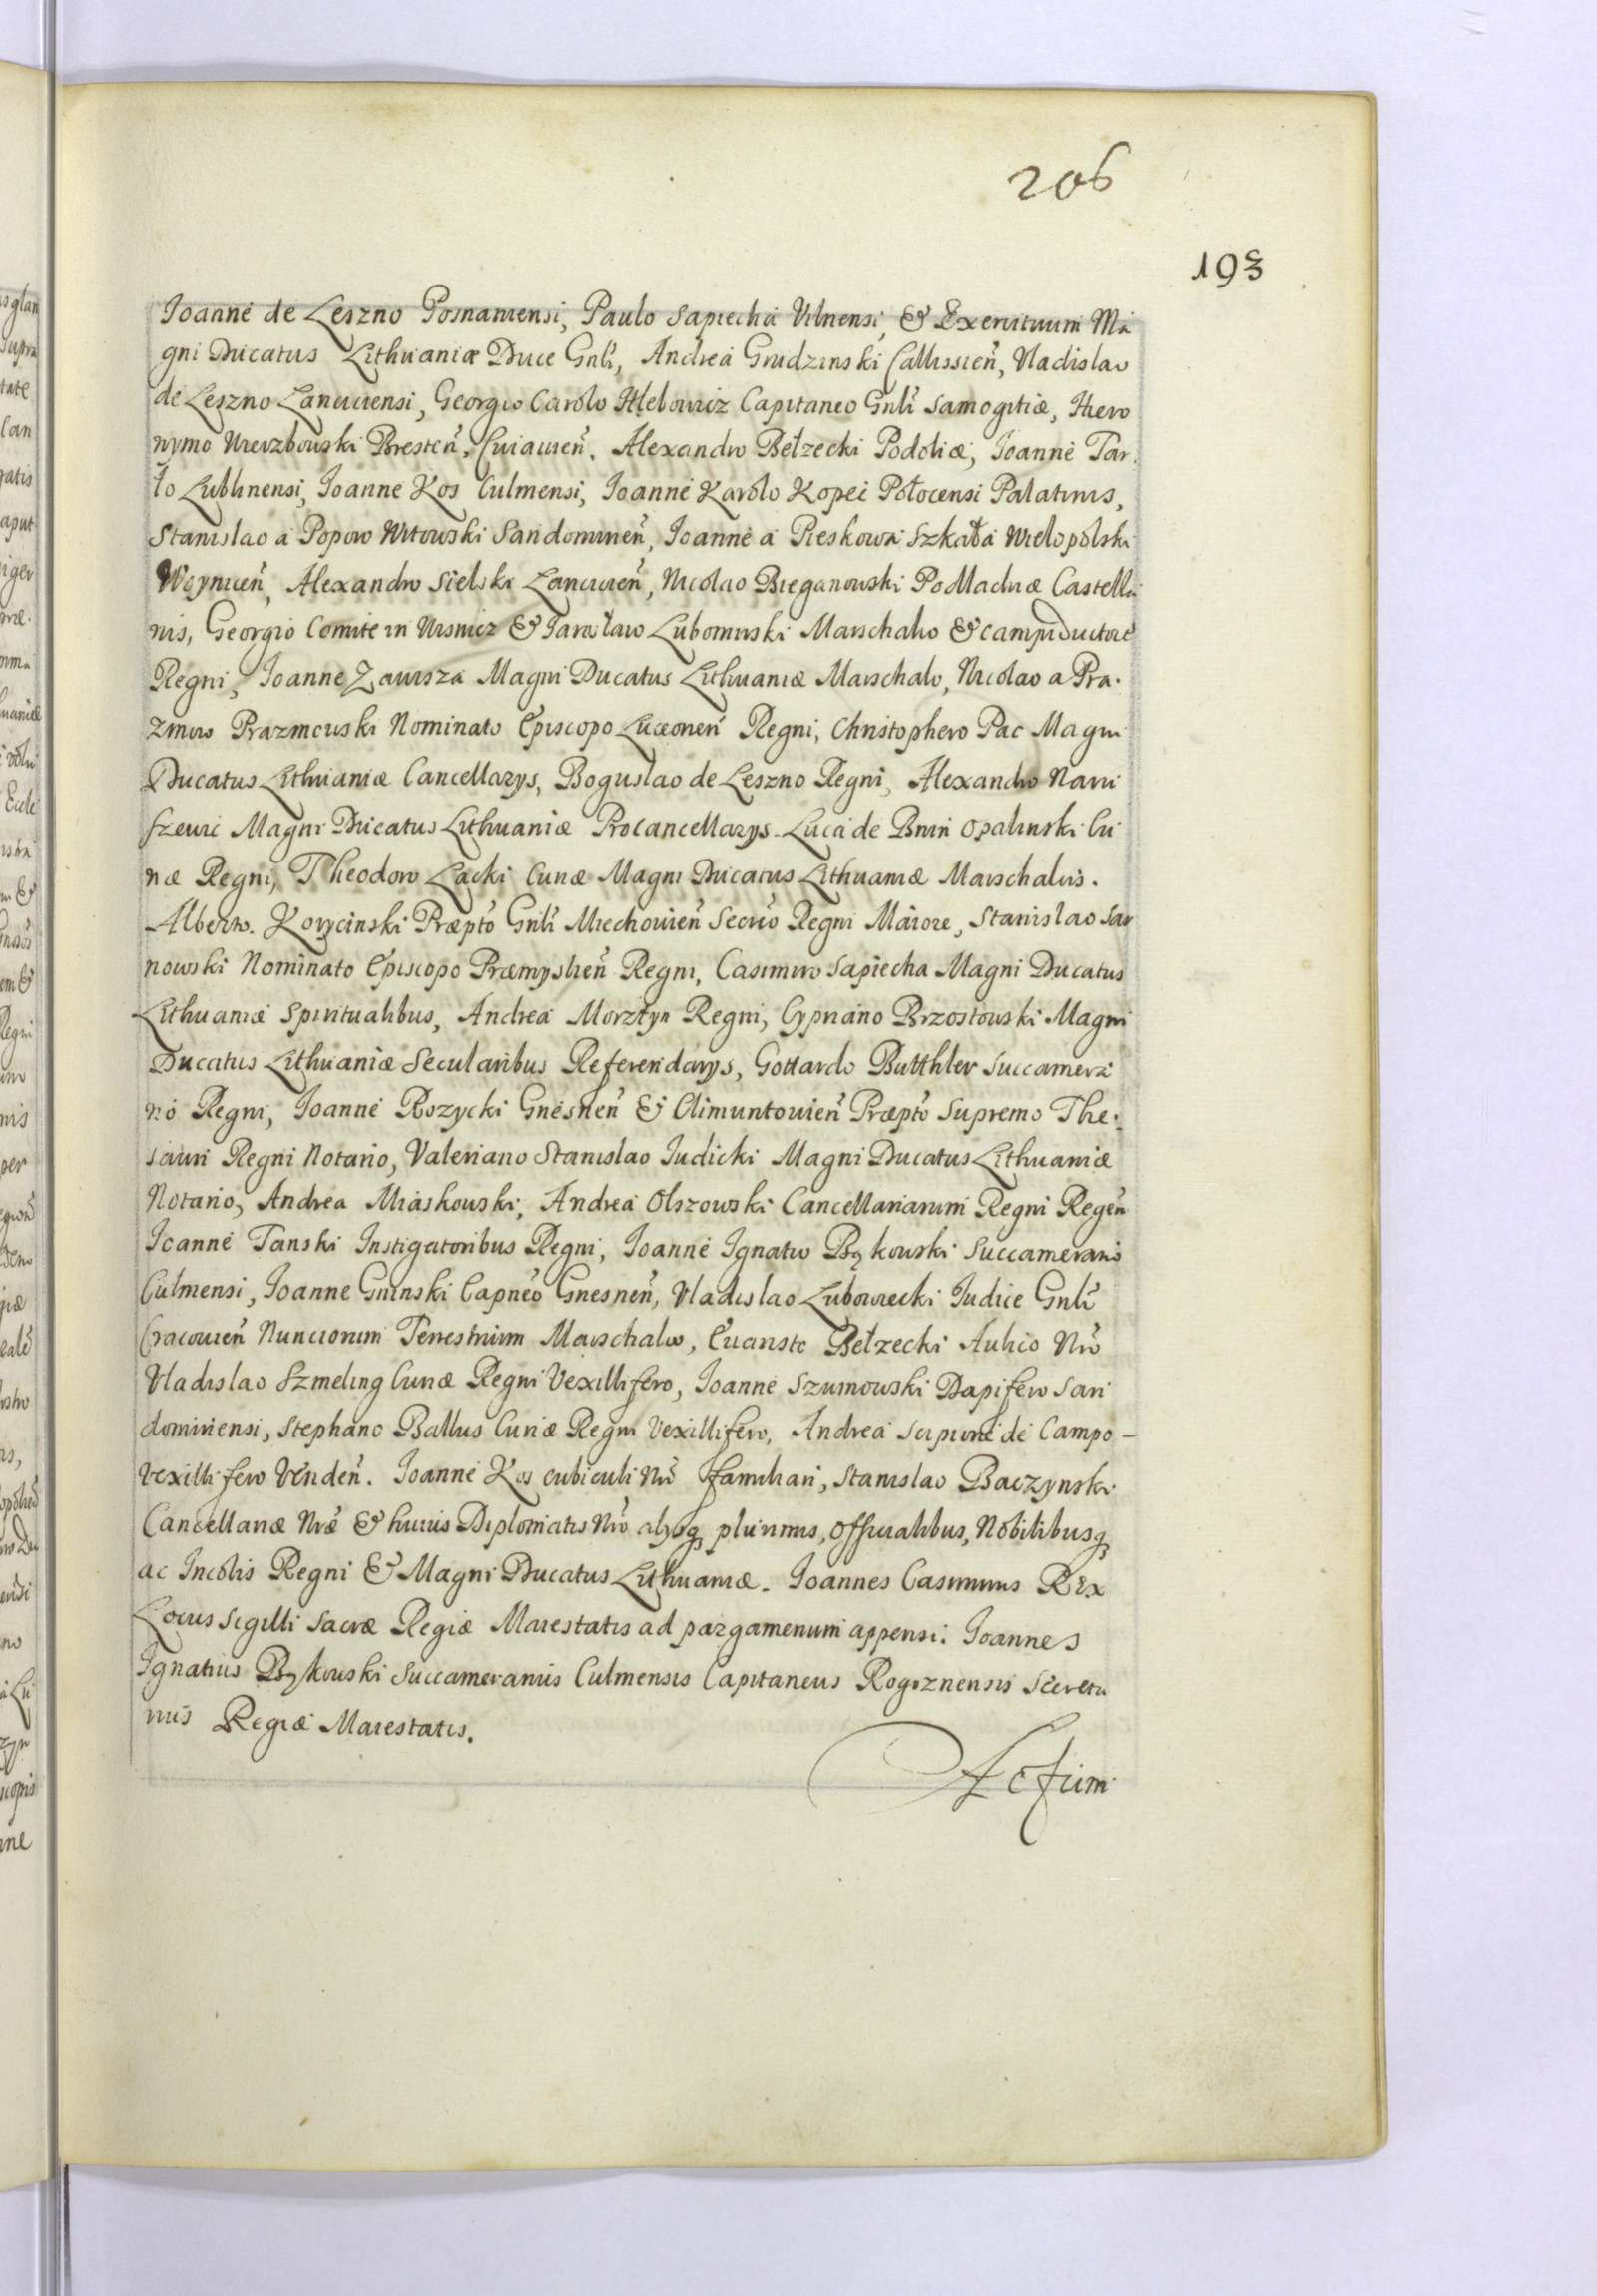 206
193
Joanne de Leszno Posnaniensi, Paulo Sapiecha Vilnensi, & Exercituum Ma
gni Ducatus Lithuaniæ Duce Gnli, Andrea Grudzinski Callissien, Vladislao
de Leszno Lanciciensi, Georgio Carolo Hlebowicz Capitaneo Gnli Samogitiæ, Hiero
nymo Wierzbowski Bresten, Cuiavien, Alexandro Bełzecki Podoliæ, Joanne Tar
ło Lublinensi, Joanne Kos Culmensi, Joanne Karolo Kopec Połocensi Palatinis,
Stanislao a Popow Witowski Sandomirien, Joanne a Pieskowa Szkała Wielopolski
Woynicien, Alexandro Sielski Lancicien, Nicolao Bieganowski Podlachiæ Castella
nis, Georgio Comite in Wisnicz & Jarosław Lubomirski Marschalco & campiductore
Regni, Joanne Zawisza Magni Ducatus Lithuaniæ Marschalco, Nicolao a Pra
zmow Prazmowski Nominato Episcopo Luceorien Regni, Christophero Pac Magni
Ducatus Lithuaniæ Cancellarys, Boguslao de Leszno Regni, Alexandro Naru
szewic Magni Ducatus Lithuaniæ Procancellarys. Luca de Bnin Opalinski Cu
riæ Regni, Theodoro Lacki Curiæ Magni Ducatus Lithuaniæ Marschalcis.
Alberto Korycinski Præpto Gnli Miechovien Secrio Regni Maiore, Stanislao Sar
nowski Nominato Episcopo Præmyslien Regni, Casimiro Sapiecha Magni Ducatus
Lithuaniæ Spiritualibus, Andrea Morztyn Regni, Cypriano Brzostowski Magni
Ducatus Lithuaniæ Secularibus Referendarys, Gottardo Butthler Succamera
rio Regni, Joanne Rozycki Gnesnen & Olimuntovien Præpto Supremo The
sauri Regni Notario, Valeriano Stanislao Judicki Magni Ducatus Lithuaniæ
Notario, Andrea Miaskowski, Andrea Olszowski Cancellariarum Regni Regen
Joanne Tanski Instigatoribus Regni, Joanne Ignatio Bąkowski Succamerario
Culmensi, Joanne Gninski Capneo Gnesnen, Vladislao Lubowiecki Judice Gnli
Cracovien Nunciorum Terrestrium Marschalco, Evaristo Bełzecki Aulico Nro
Vladislao Szmeling Curiæ Regni Vexillifero, Joanne Szumowski Dapifero San
domiriensi, Stephano Ballus Curiæ Regni Vexillifero, Andrea Scipione de Campo
Vexillifero Venden. Joanne Kos cubiculi Nri Familiari, Stanislao Baczynski
Cancellariæ Nræ & huius Diplomatis Nro alysq plurimis, Officialibus, Nobilibusq
ac Incolis Regni & Magni Ducatus Lithuaniæ. Joannes Casimirus REx
Locus Sigilli Sacræ Regiæ Maiestatis ad pargamenum appensi. Joannes
Ignatius Bąkowski Succamerarius Culmensis Capitaneus Rogoznensis Secreta
rius Regiæ Maiestatis.
Actum